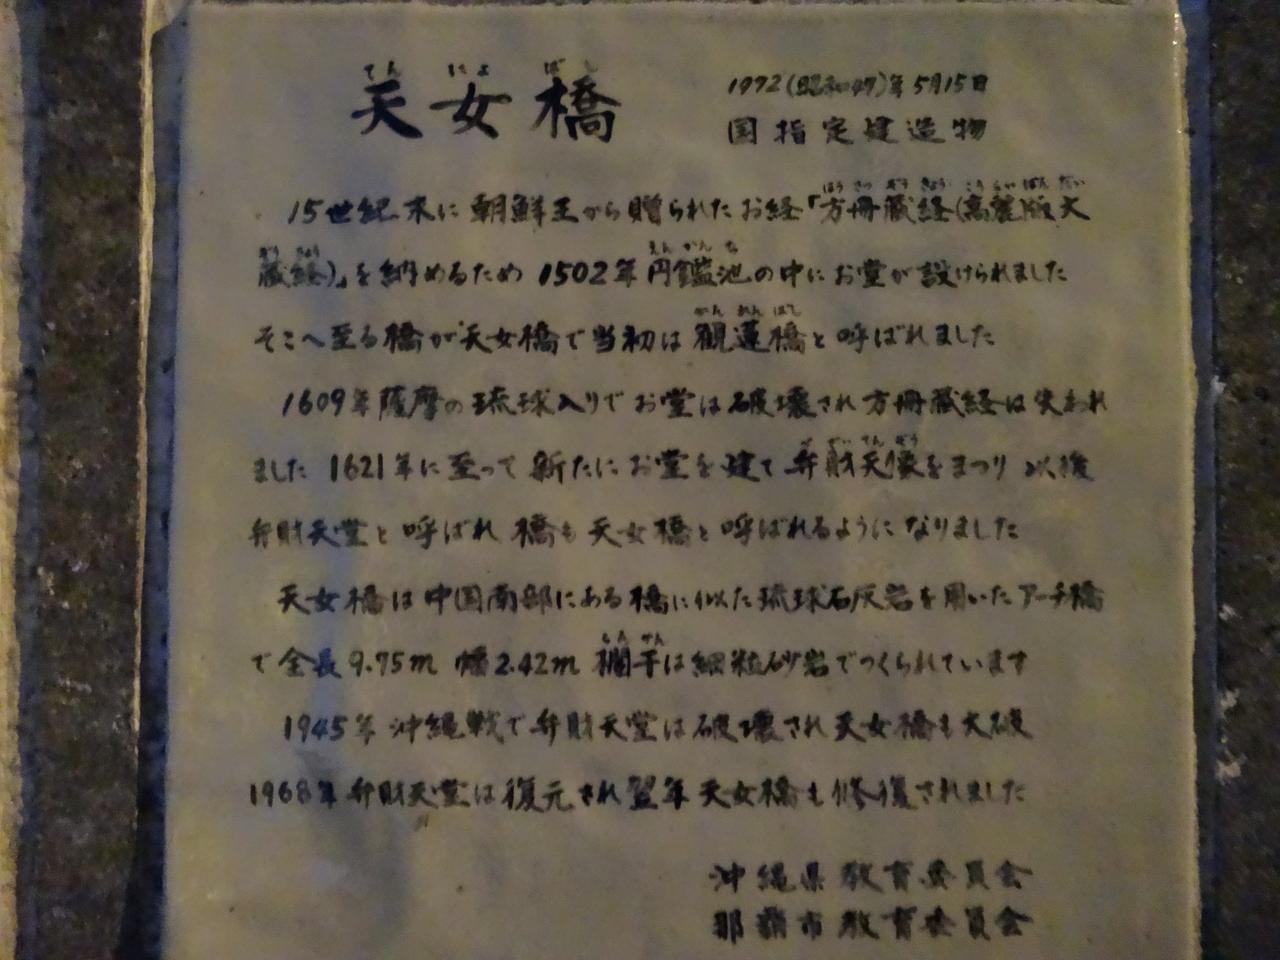 てん にょ ばし
天女橋
1972(昭和47)年5月15日
国指定建造物
ほう さつ ぞう きょう こう らい ばん だい
15世紀末に 朝鮮王から贈られた お経「方冊蔵経(高麗版大
ぞう きょう えん かん ち
蔵経)」を納めるため 1502年 円鑑池の中に お堂が設けられました
かん れん ばし
そこへ至る橋が天女橋で当初は 観蓮橋と 呼ばれました
1609年薩摩の琉球入りで お堂は破壊され 方冊蔵経は失われ
べ ざい てん ぞう
ました 1621年に至って 新たに お堂を建て 弁財天像をまつり 以後
弁財天堂と 呼ばれ 橋も 天女橋と 呼ばれるようになりました
天女橋は中国南部にある橋に似た琉球石灰岩を用いたアーチ橋
らん かん
で全長9.75m 幅2.42m 欄干は細粒砂岩でつくられています
1945年 沖縄戦で弁財天堂は破壊され 天女橋も大破
1968年 弁財天堂は復元され翌年 天女橋も修復されました
沖縄県教育委員会
那覇市教育委員会